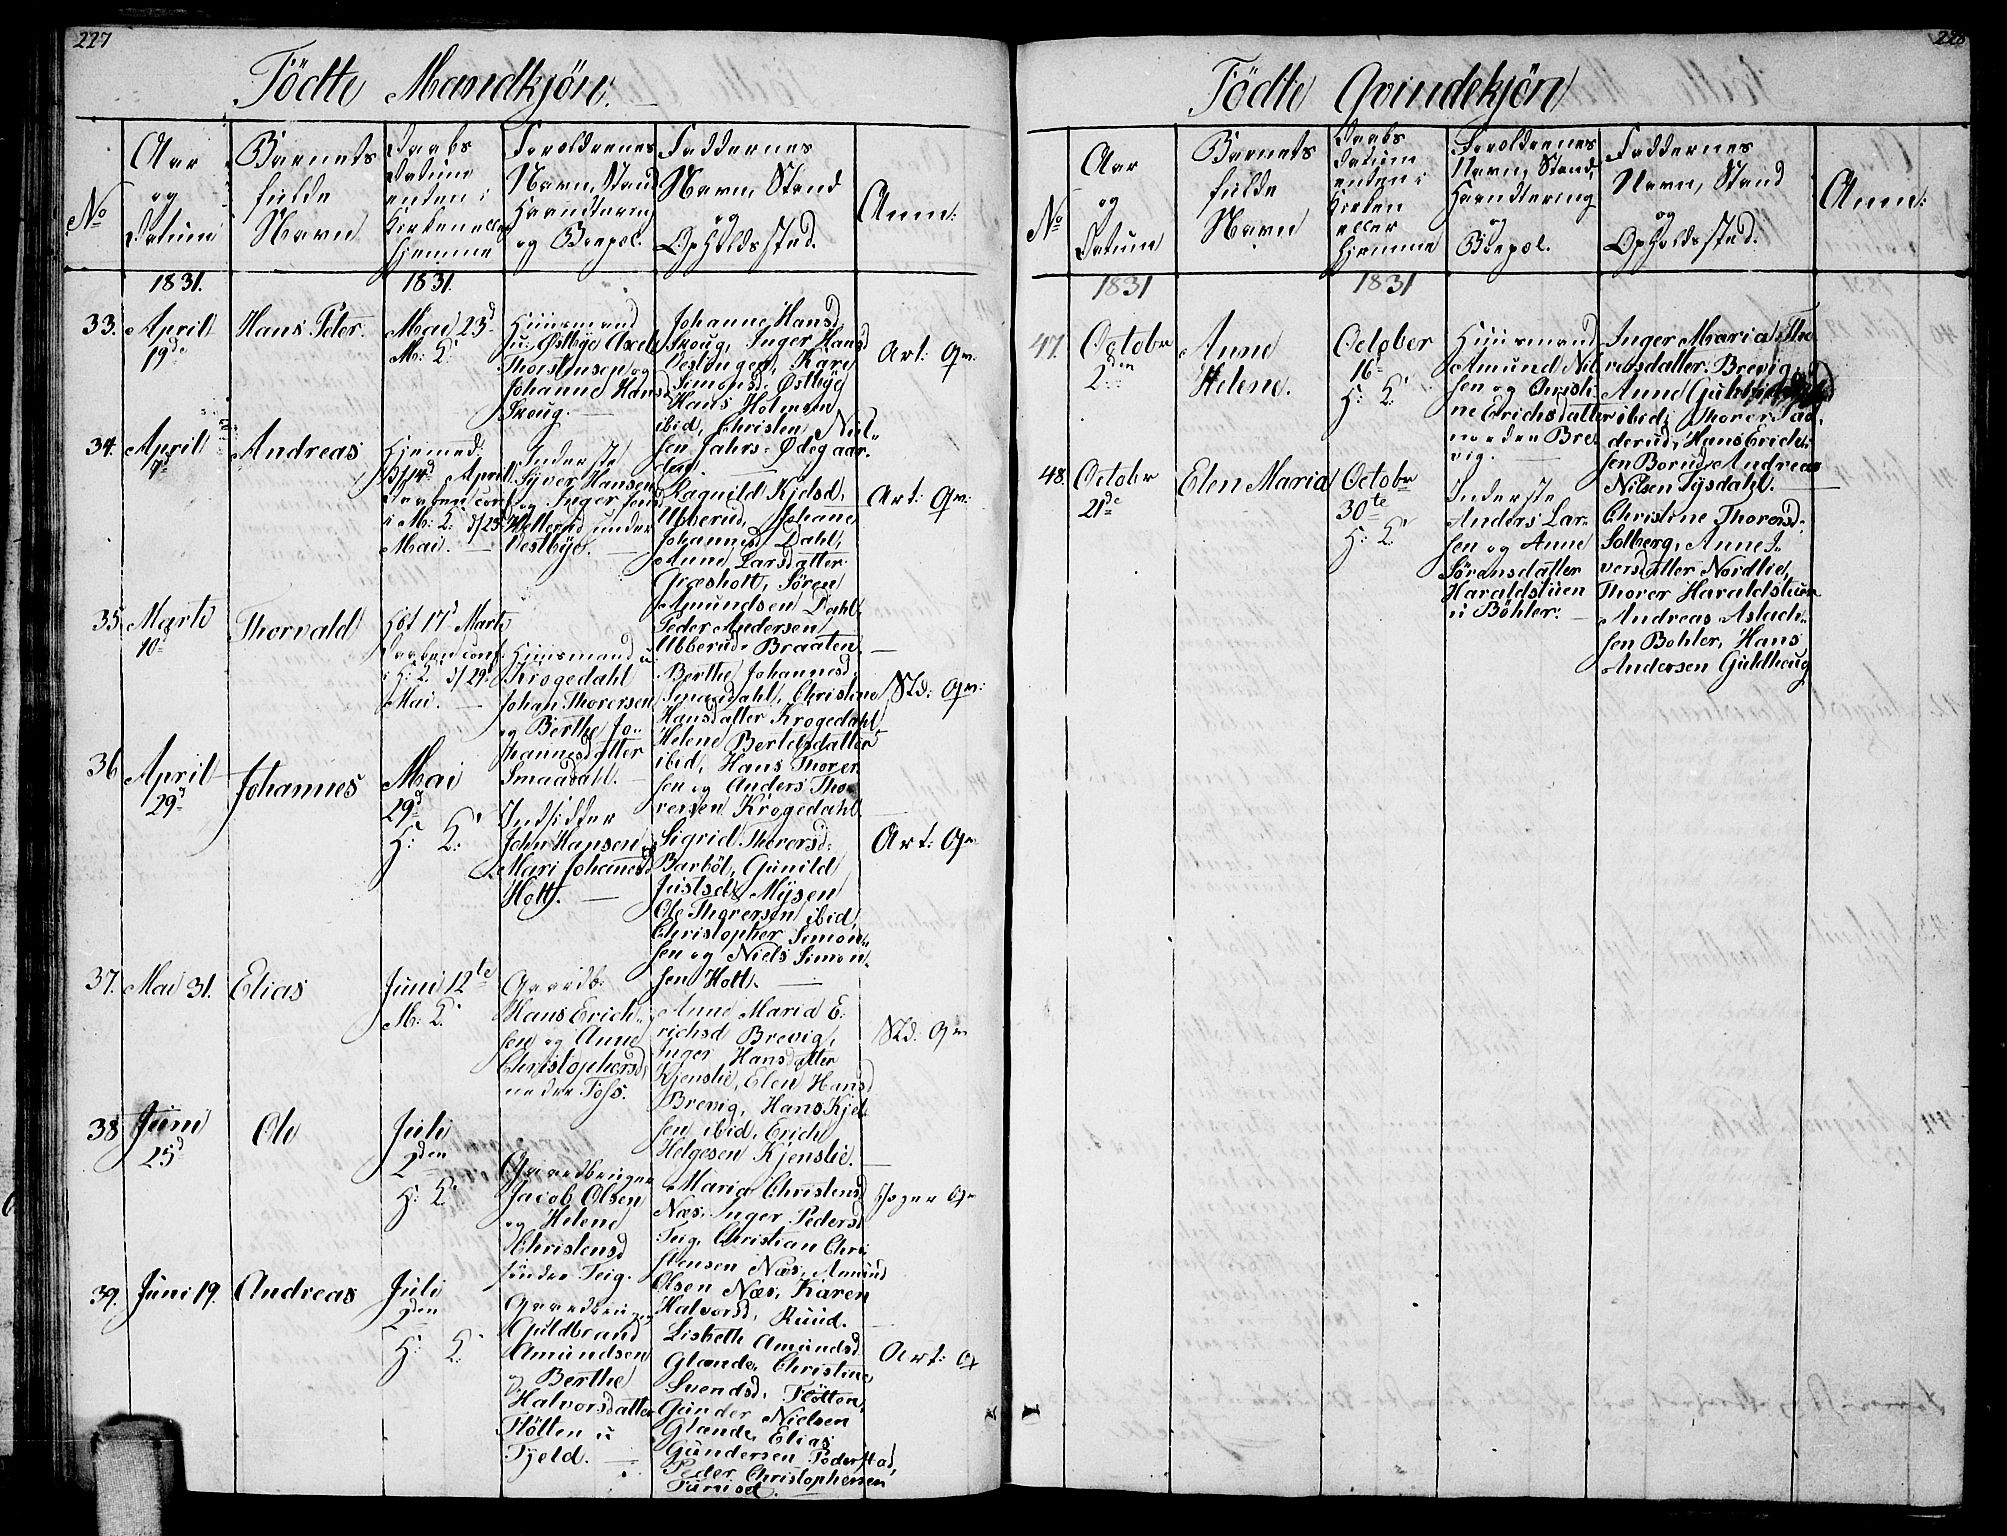 227
Födte Mandkjön.
No
Aar
og
Datum
Barnets
fulde
Navn
Daabs
Datum
enten i
Kirken eller
hjemme
Forældrenes
Navn, Stand
Haandtering
og Boepæl.
Faddernes
Navn, Stand
og
Opholdssted.
Anm:
1831.
1831.
33.
April
19de
Hans Peter.
Mai 23d
M: K:
Huusmand
u: Østbye Axel
Thorstensen og
Johanne Hansd
Skoug.
Johanne Hansd
Skoug, Inger Hansd
Vestengen, Kari
Simonsd. Østbye
Hans Holmen
ibid, Christen Niel-
sen Jahrs-Ødegaar-
den.
Art: Qv:
34.
April
7d
Andreas
Hjemmed:
April
Daaben conf:
i M: K: d/23d
Mai.
Inderste
Syver Hansen
og Inger Jensd
Melleruud under
Vestbye.
Ragnild Kjelsd,
Ubberud, Johane
Johannesd Dahl,
Anne Larsdatter
Græsholt, Sören
Amundsen Dahl
Peder Andersen
Ubberud-Braaten.
Art: Qv:
35.
Marti
10d
Thorvald
17d Marti
Daaben conf:
i H: K: d/29d
Mai.
Huusmand u:
Krogedahl
Johan Thorersen
og Berthe Jo-
hannesdatter
Smaadahl.
Berthe Johannesd,
Smaadahl, Christine
Hansdatter Krogedahl
Helene Bertelsdatter
ibid, Hans Thorer-
sen og Anders Tho-
rersen Krogedahl.
Sld: Qv:
36
April
29d
Johannes
Mai
29d
H: K:
Indsidder
John Hansen og
Mari Johannesd
Holt.
Sigrid Thorersd:
Barböl, Gunild
Justsd: Mysen
Ole Thorersen ibid,
Christopher Simon-
sen og Niels Simon-
sen Holt.
Art: Qv
37.
Mai 31.
Elias
Juni 12te
M: K:
Gaardb:
Hans Erich-
sen og Anne
Christophersd,
nedre Foss.
Anne Maria E-
richsd Brevig,
Inger Hansdatter
Kjenslie, Elen Hansd
Brevig, Hans Kjel-
sen ibid, Erich
Helgesen Kjenslie.
Sld: Qv
38
Juni
25d
Ole
Juli
2den
H: K:
Gaardbruger
Jacob Olsen
og Helene
Christensd
söndre Teig.
Maria Christensd
Næs, Inger Pedersd
Teig, Christian Chri-
stensen Næs, Amund
Olsen Næs, Karen
Halvorsd, Ruud.
39.
Juni 19.
Andreas
Juli
2den
H: K:
Gaardbruger
Guldbrand
Amundsen
og Berthe
Halvorsdatter
Flötten u
Fjeld.
Lisbeth Amundsd
Glande, Christine
Svendsd, Flötten,
Gunder Nielsen
Glande, Elias
Gundersen Foderstad,
Peder Christophersen
Art: Q
228
Födte Qvindekjön
No
Aar
og
Datum
Barnets
fulde
Navn
Daabs
Datum
enten i
Kirken
eller
hjemme
Forældrenes
Navn, Stand,
Haandtering
og
Boepæl.
Faddernes
Navn, Stand
og
Opholdssted.
Anm:
1831
1831
47.
Octobr
2den
Anne
Helene.
October
16d
H: K:
Huusmand
Amund Nil-
sen og Christi-
ne Erichsdatter
norden Bre-
vig.
Inger Maria Tho-
rersdatter Brevig,
Anne
ibid; Thorer
derud, Hans Erich-
sen Borud, Andreas
Nilsen Sysdahl.
48.
Octobr
21de
Elen Maria
Octobr
30te
H: K:
Inderste
Anders Lar-
sen og Anne
Söransdatter
Haraldstuen
u Böhler.
Christine Thorersd:
Solberg, Anne I-
versdatter Nordlie,
Thorer Haraldstuen
Andreas Aslach-
sen Bohler, Hans
Andersen Guldhaug